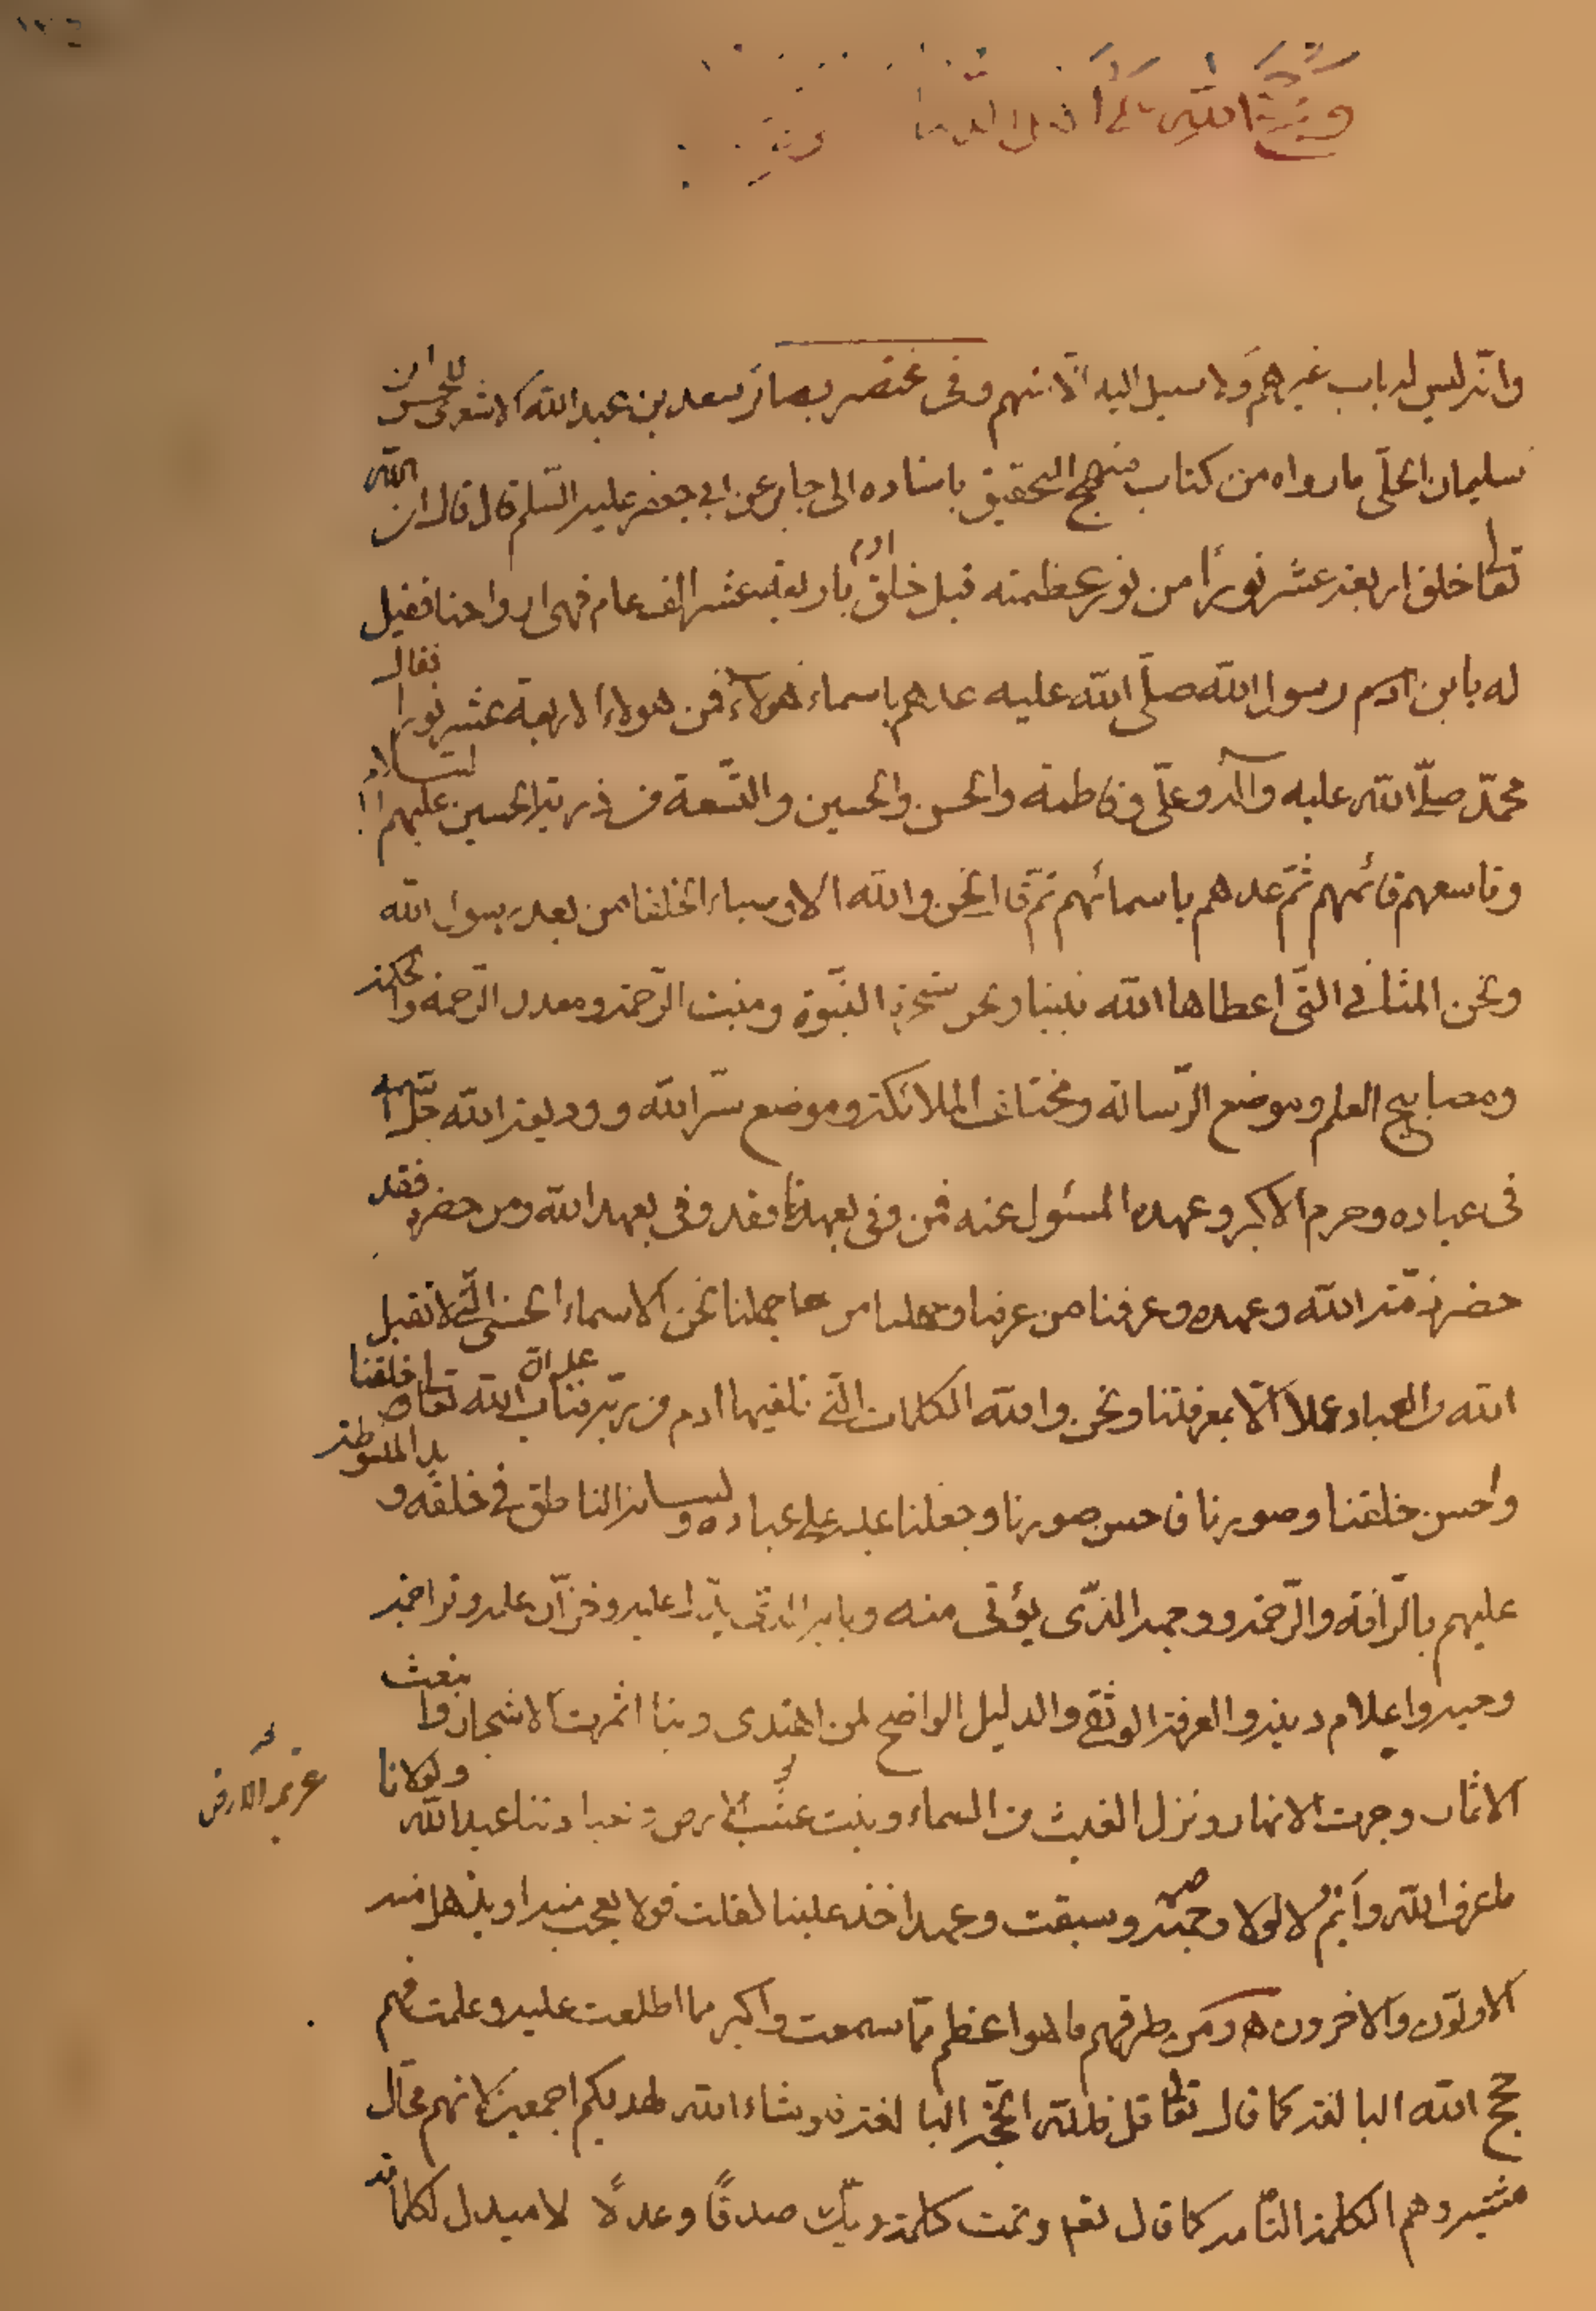 وانه ليس له باب غيرهم ولا سبيل اليه الا منهم وفى مختصر بصائر سعد بن عبد الله الاشعرى للحسن ابن
سليمان الحلّى ما رواه من كتاب منهج التحقيق باسناده الى جابر عن ابي جعفر عليه السّلم قال قال ان الله
تعالى خلق اربعة عشر نورًا من نور عظمته قبل خلق ادم باربعة عشر الف عام فهى ارواحنا فقيل
له يا بن رسول الله صلّى الله عليه عدهم باسماء هولاء فمن هولاء الاربعة عشر نورا فقال
محمّد صلّى الله عليه وآله وعلّى وفاطمة والحسن والحسين والتّسعة من ذرية الحسين عليهم السلام
وتاسعهم قائمهم ثمّ عدهم باسمائهم ثمّ قال نحن والله الاوصياء الخلفا من بعد رسول الله
ونحن المثانى التّى اعطاها الله نبينا ونحن شجرة النّبوة ومنبت الرّحمة ومعدن الرّحمة والحكمة
ومصابيح العلم وموضع الرّسالة ومختلف الملائكة وموضع سرّ الله ووديعة الله جلّ اسمه
فى عباده وحرم الاكبر وعهده المسئول عنه فمن وفى بعهدنا فقد وفى بعهد الله ومن خفره فقد
خفر ذمّة الله وعهده وعرفنا من عرفنا وجهلنا من جهلنا نحن الاسماء الحسنى التّى لا تقبل
الله من العباد عملا الّا بمعرفتنا ونحن والله الكلمات التّى تلقيها ادم من ربّه فتاب عليه ان الله تعالى خلقنا
واحسن خلقنا وصورنا فاحسن صورنا وجعلنا عينه على عباده ولسانه الناطق فى خلقه و يده المبسوطة
عليهم بالرّافة والرّحمة ووجهه الذّى يؤتى منه وبابه الذى يدّل عليه وخزّان علمه وتراجمة
وحيه واعلام دينه والعروة الوثقى والدليل الواضح لمن اهتدى وبنا اثمرت الاشجار واينعت
الاثمار وجرت الانهار ونزل الغيث من السماء ونبت عشب الارض وبعبادتنا عبد الله ولولانا
ما عرف الله وايم الله لولا وصية سبقت وعهد اخذ علينا لقلت قولا يعجب منه او يذهل منه
الاولون والاخرون ومن طرقهم ما هو اعظم ممّا سمعت واكبر مما اطلعت عليه وعلمت فهم
حجج الله البالغة كما قال تعالى قل فلله الحجّة البالغة فلو شاء الله لهديكم اجمعين لانهم محّال
مشيته وهم الكلمة التّامة كما قال تعالى وتمت كلمة ربّك صدقًا وعدلًا لا مبدل لكلماته